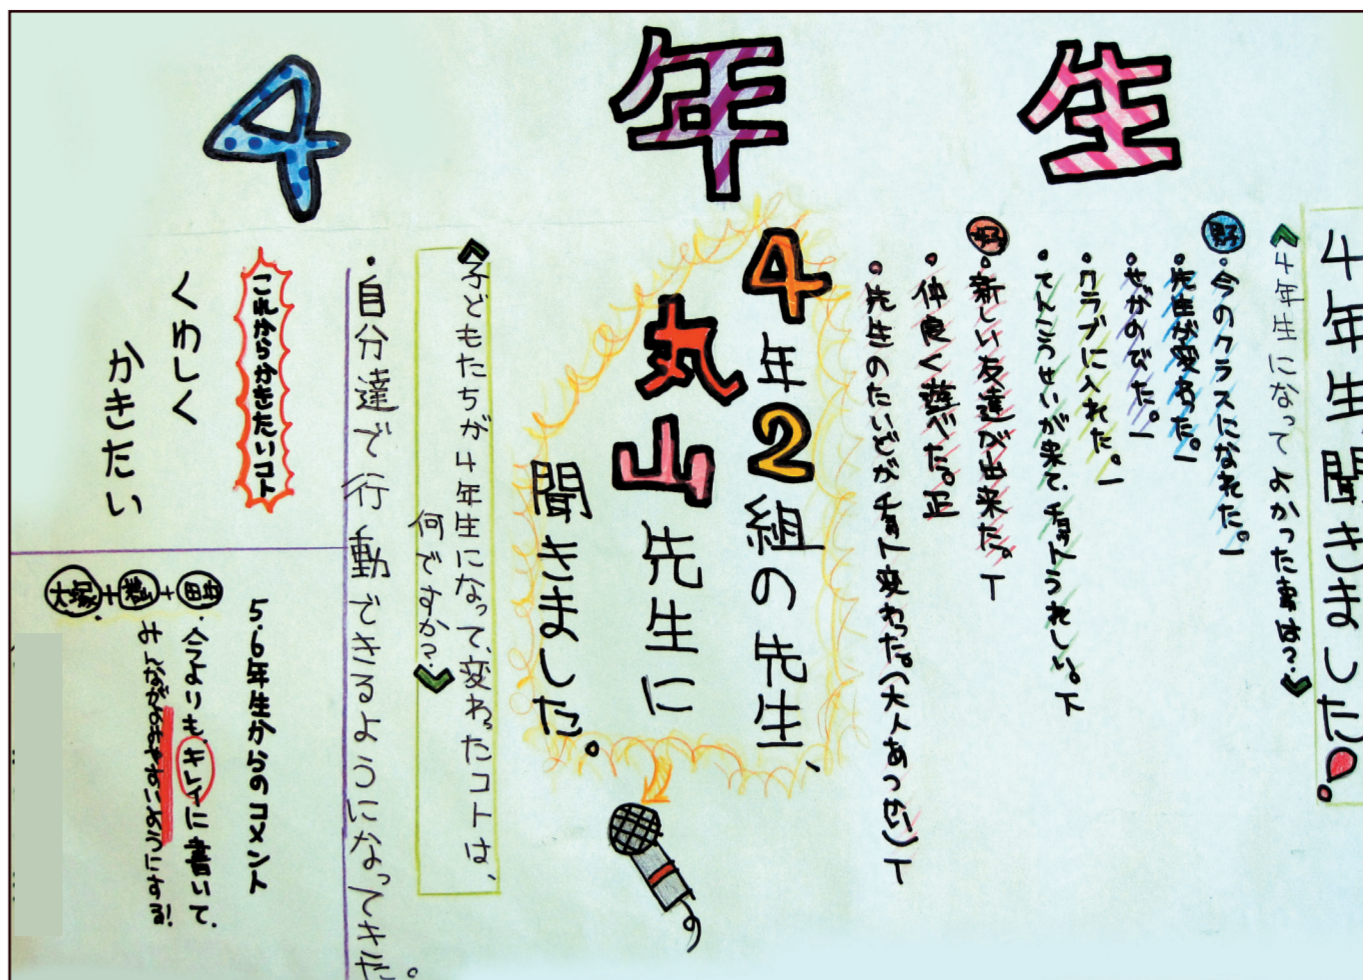 4年生
4年生に聞きました!
4年生になってよかった事は?
男
・今のクラスになれた。一
・先生が変わった。一
・せがのびた。一
・クラブに入れた。一
・てんこうせいが来て、チョットうれしい。下
女
・新しい友達が出来た。T
・仲良く遊べた。正
・先生のたいどがチョット変わった。(大人あつかい)T
4年2組の先生、
丸山先生に
聞きました。
子どもたちが4年生になって、変わったコトは、
何ですか?
・自分達で行動できるようになってきた。
これからかきたいコト
くわしく
かきたい
5.6年生からのコメント
・今よりも、キレイに書いて、